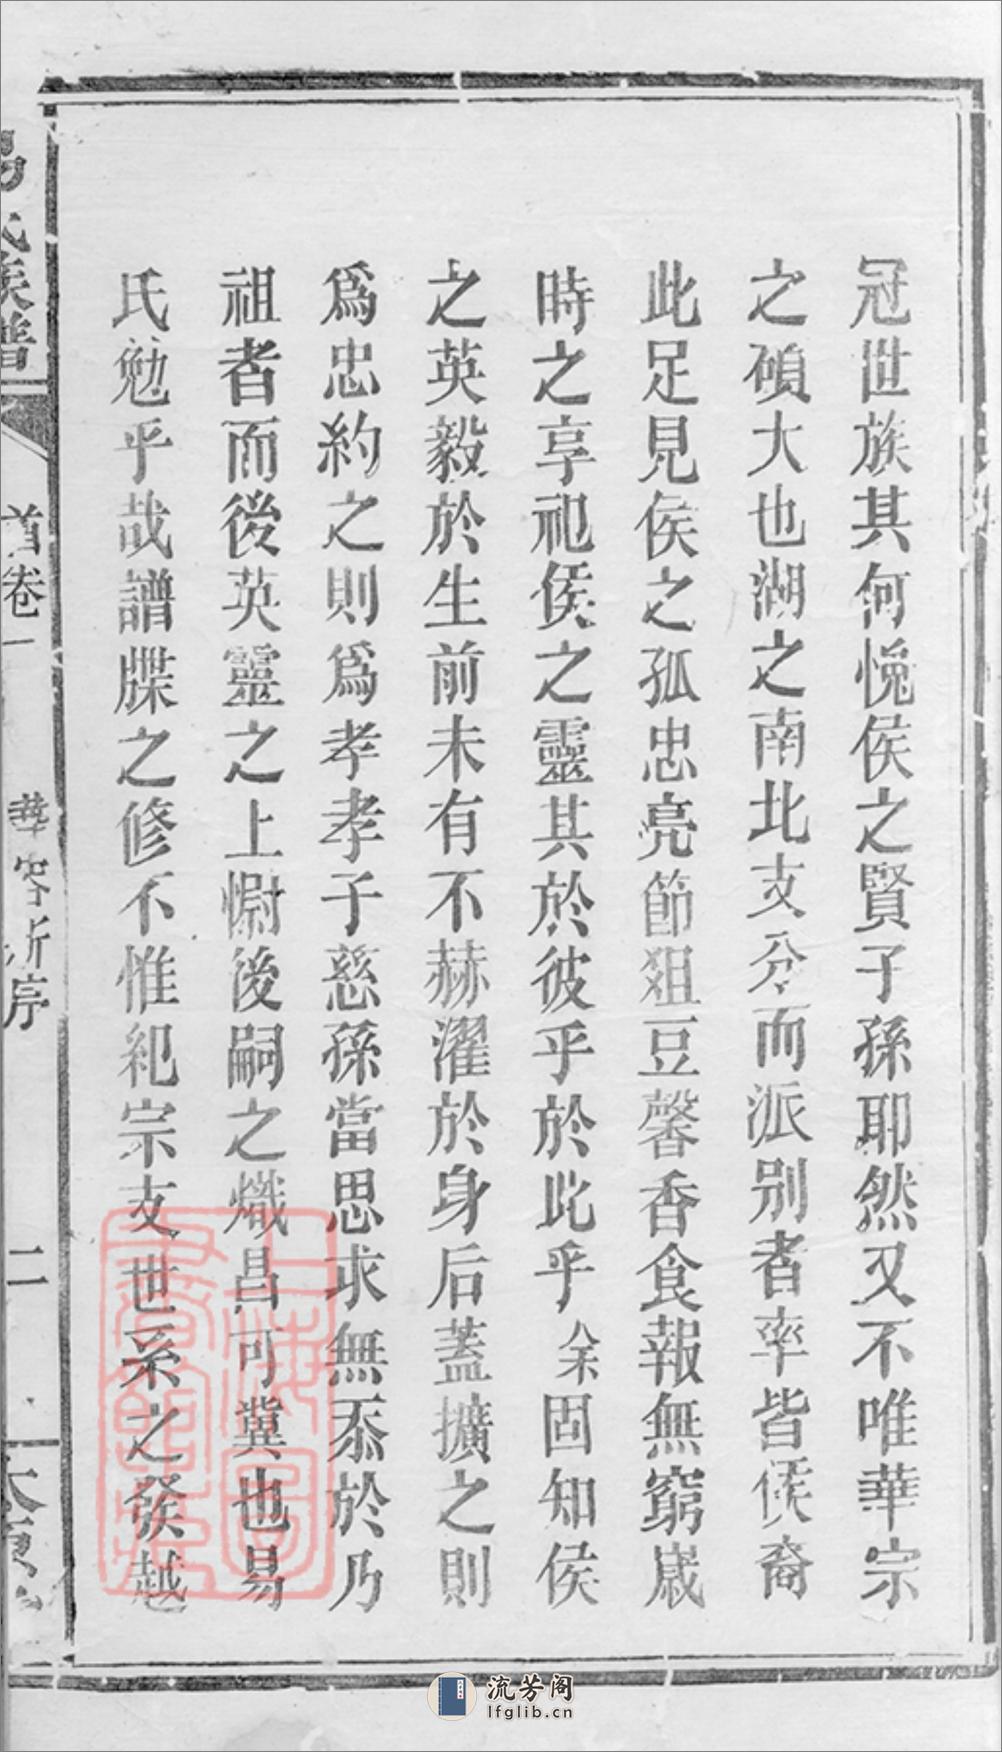 冠世族其何愧侯之賢子孫耶然又不唯華宗
之碩大也湖之南北支分而派别者率皆侯裔
此足見侯之孤忠亮節俎豆馨香食報無窮嵗
時之享祀侯之靈其於彼乎於此乎余固知侯
之英毅於生前未有不赫濯於身后蓋擴之則
爲忠約之則爲孝孝子慈孫當思求無忝於乃
祖者而後英靈之上慰後嗣之熾昌可冀也易
氏勉乎哉譜牒之修不惟紀宗支世系之發越
易氏族譜
首卷一
華容新序
二
上海圖書館藏
流芳阁
lfglib.cn